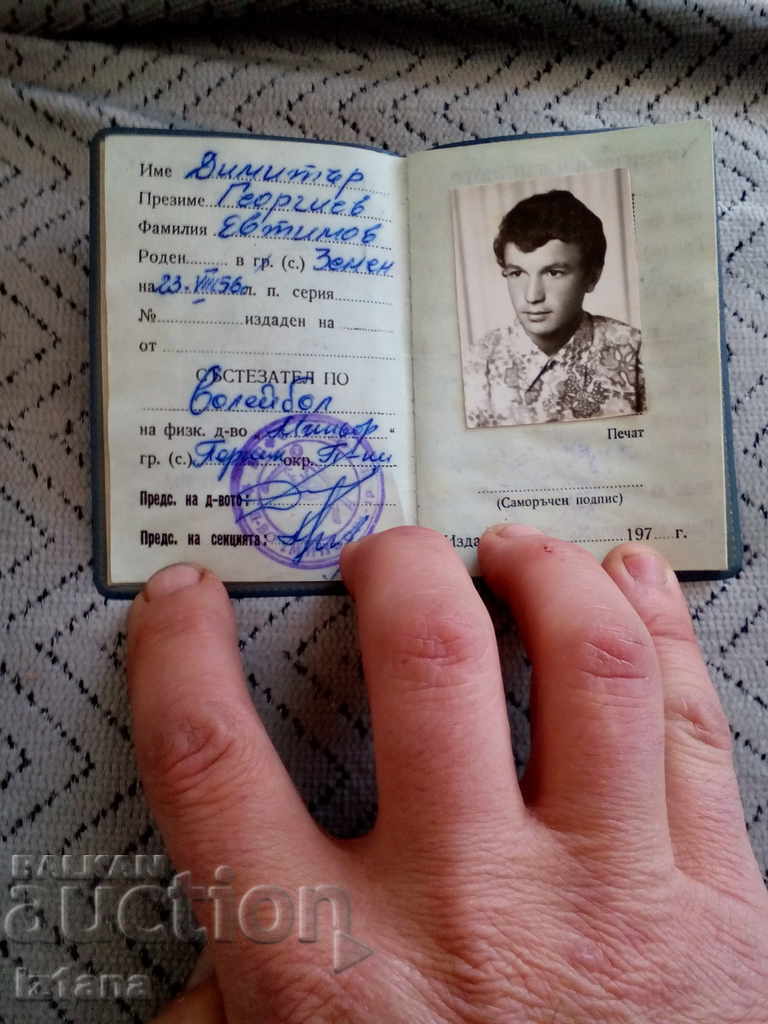 Име Димитър
Презиме Георгиев
Фамилия Евтимов
Роден......... в гр. (с.) Земен
на 23.VIII.56 л. п. серия
№ издаден на
от
СЪСТЕЗАТЕЛ ПО
Волейбол
на физк. д-во „Миньор“
гр. (с.) Перник окр.
Предс. на д-вото:
Предс. на секцията:
Печат
(Саморъчен подпис)
Изда 197 г.
BALKAN
auction
Iztana